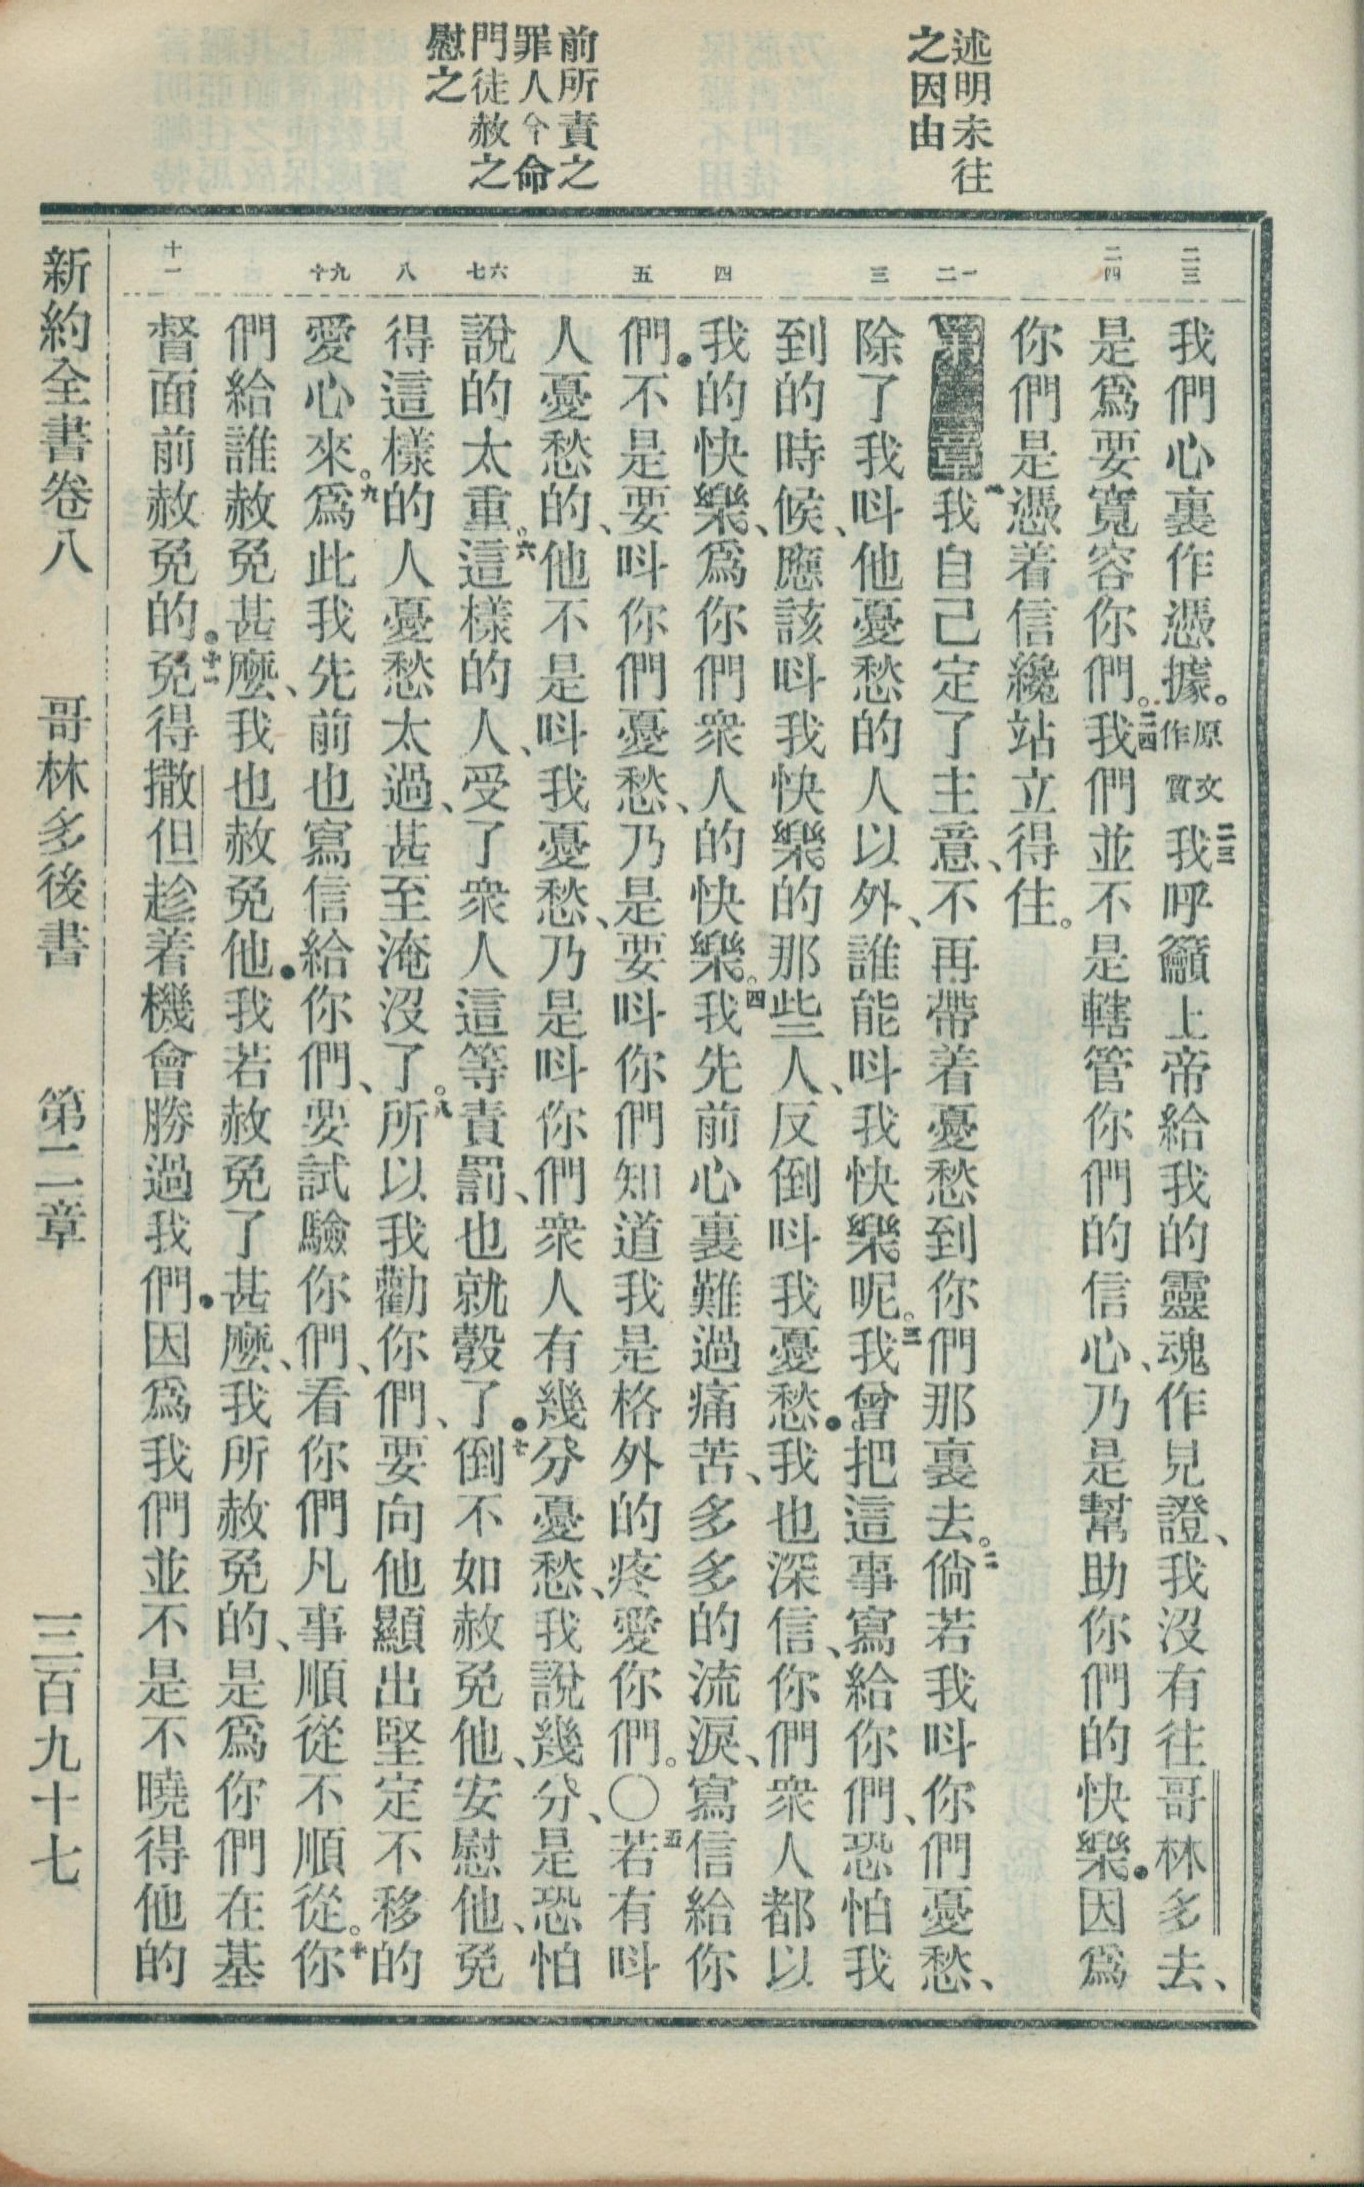 述明未往
之因由
前所責之
罪人今命
門徒赦之
慰之
二三
二四
一二
三
四
五
六七
八
九十
十一
我們心裏作憑據。原文作質二三我呼籲上帝給我的靈魂作見證、我沒有往哥林多去、
是爲要寬容你們。二四我們並不是轄管你們的信心、乃是幫助你們的快樂．因爲
你們是憑着信纔站立得住。
第二章一我自己定了主意、不再帶着憂愁到你們那裏去。二倘若我呌你們憂愁、
除了我呌他憂愁的人以外、誰能呌我快樂呢。三我曾把這事寫給你們、恐怕我
到的時候、應該呌我快樂的那些人、反倒呌我憂愁．我也深信、你們衆人都以
我的快樂、爲你們衆人的快樂。四我先前心裏難過痛苦、多多的流淚、寫信給你
們．不是要呌你們憂愁、乃是要呌你們知道我是格外的疼愛你們。〇五若有呌
人憂愁的、他不是呌我憂愁、乃是呌你們衆人有幾分憂愁、我說幾分、是恐怕
說的太重。六這樣的人、受了衆人這等責罰、也就彀了．七倒不如赦免他、安慰他、免
得這樣的人憂愁太過、甚至淹沒了。八所以我勸你們、要向他顯出堅定不移的
愛心來。九爲此我先前也寫信給你們、要試驗你們、看你們凡事順從不順從。十你
們給誰赦免甚麽、我也赦免他．我若赦免了甚麽、我所赦免的、是爲你們在基
督面前赦免的．十一免得撒但趁着機會勝過我們．因爲我們並不是不曉得他的
新約全書卷八　哥林多後書　第二章　三百九十七